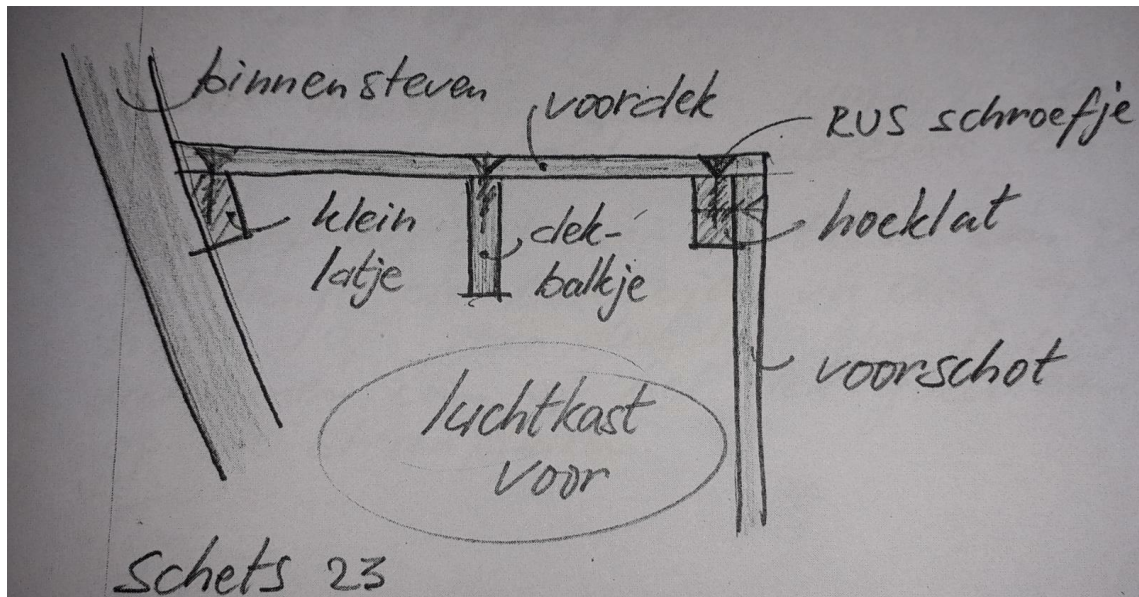 binnensteven
voordek
RVS schroefje
klein
latje
dek-
balkje
hoeklat
voorschot
luchtkast
voor
Schets 23